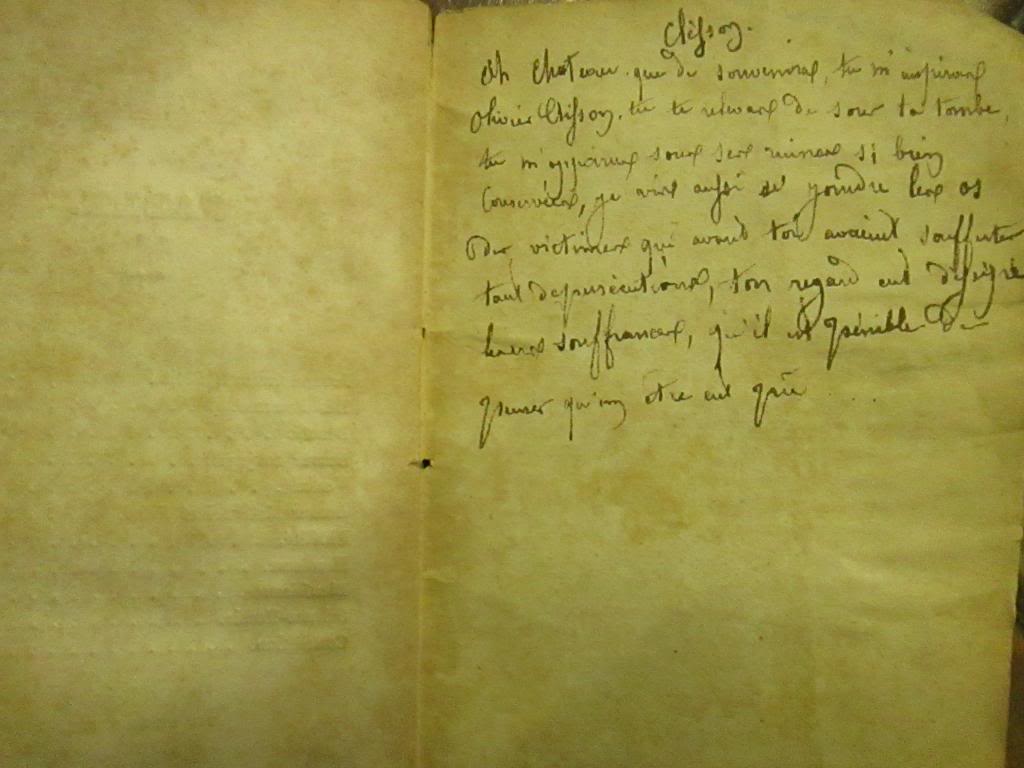 Clisson.
Ah Chateau que de souvenirs, tu m'inspires
Olivier Clisson, tu te releves de sous ta tombe,
tu m' sous ses ruines si bien
Conservées, je vois aussi se joindre les os
Des victimes qui avant toi avaient souffert
tant de persécutions, ton regard eut
leurs souffrances, qu'il est pénible De
penser qu'un être eut prie ....